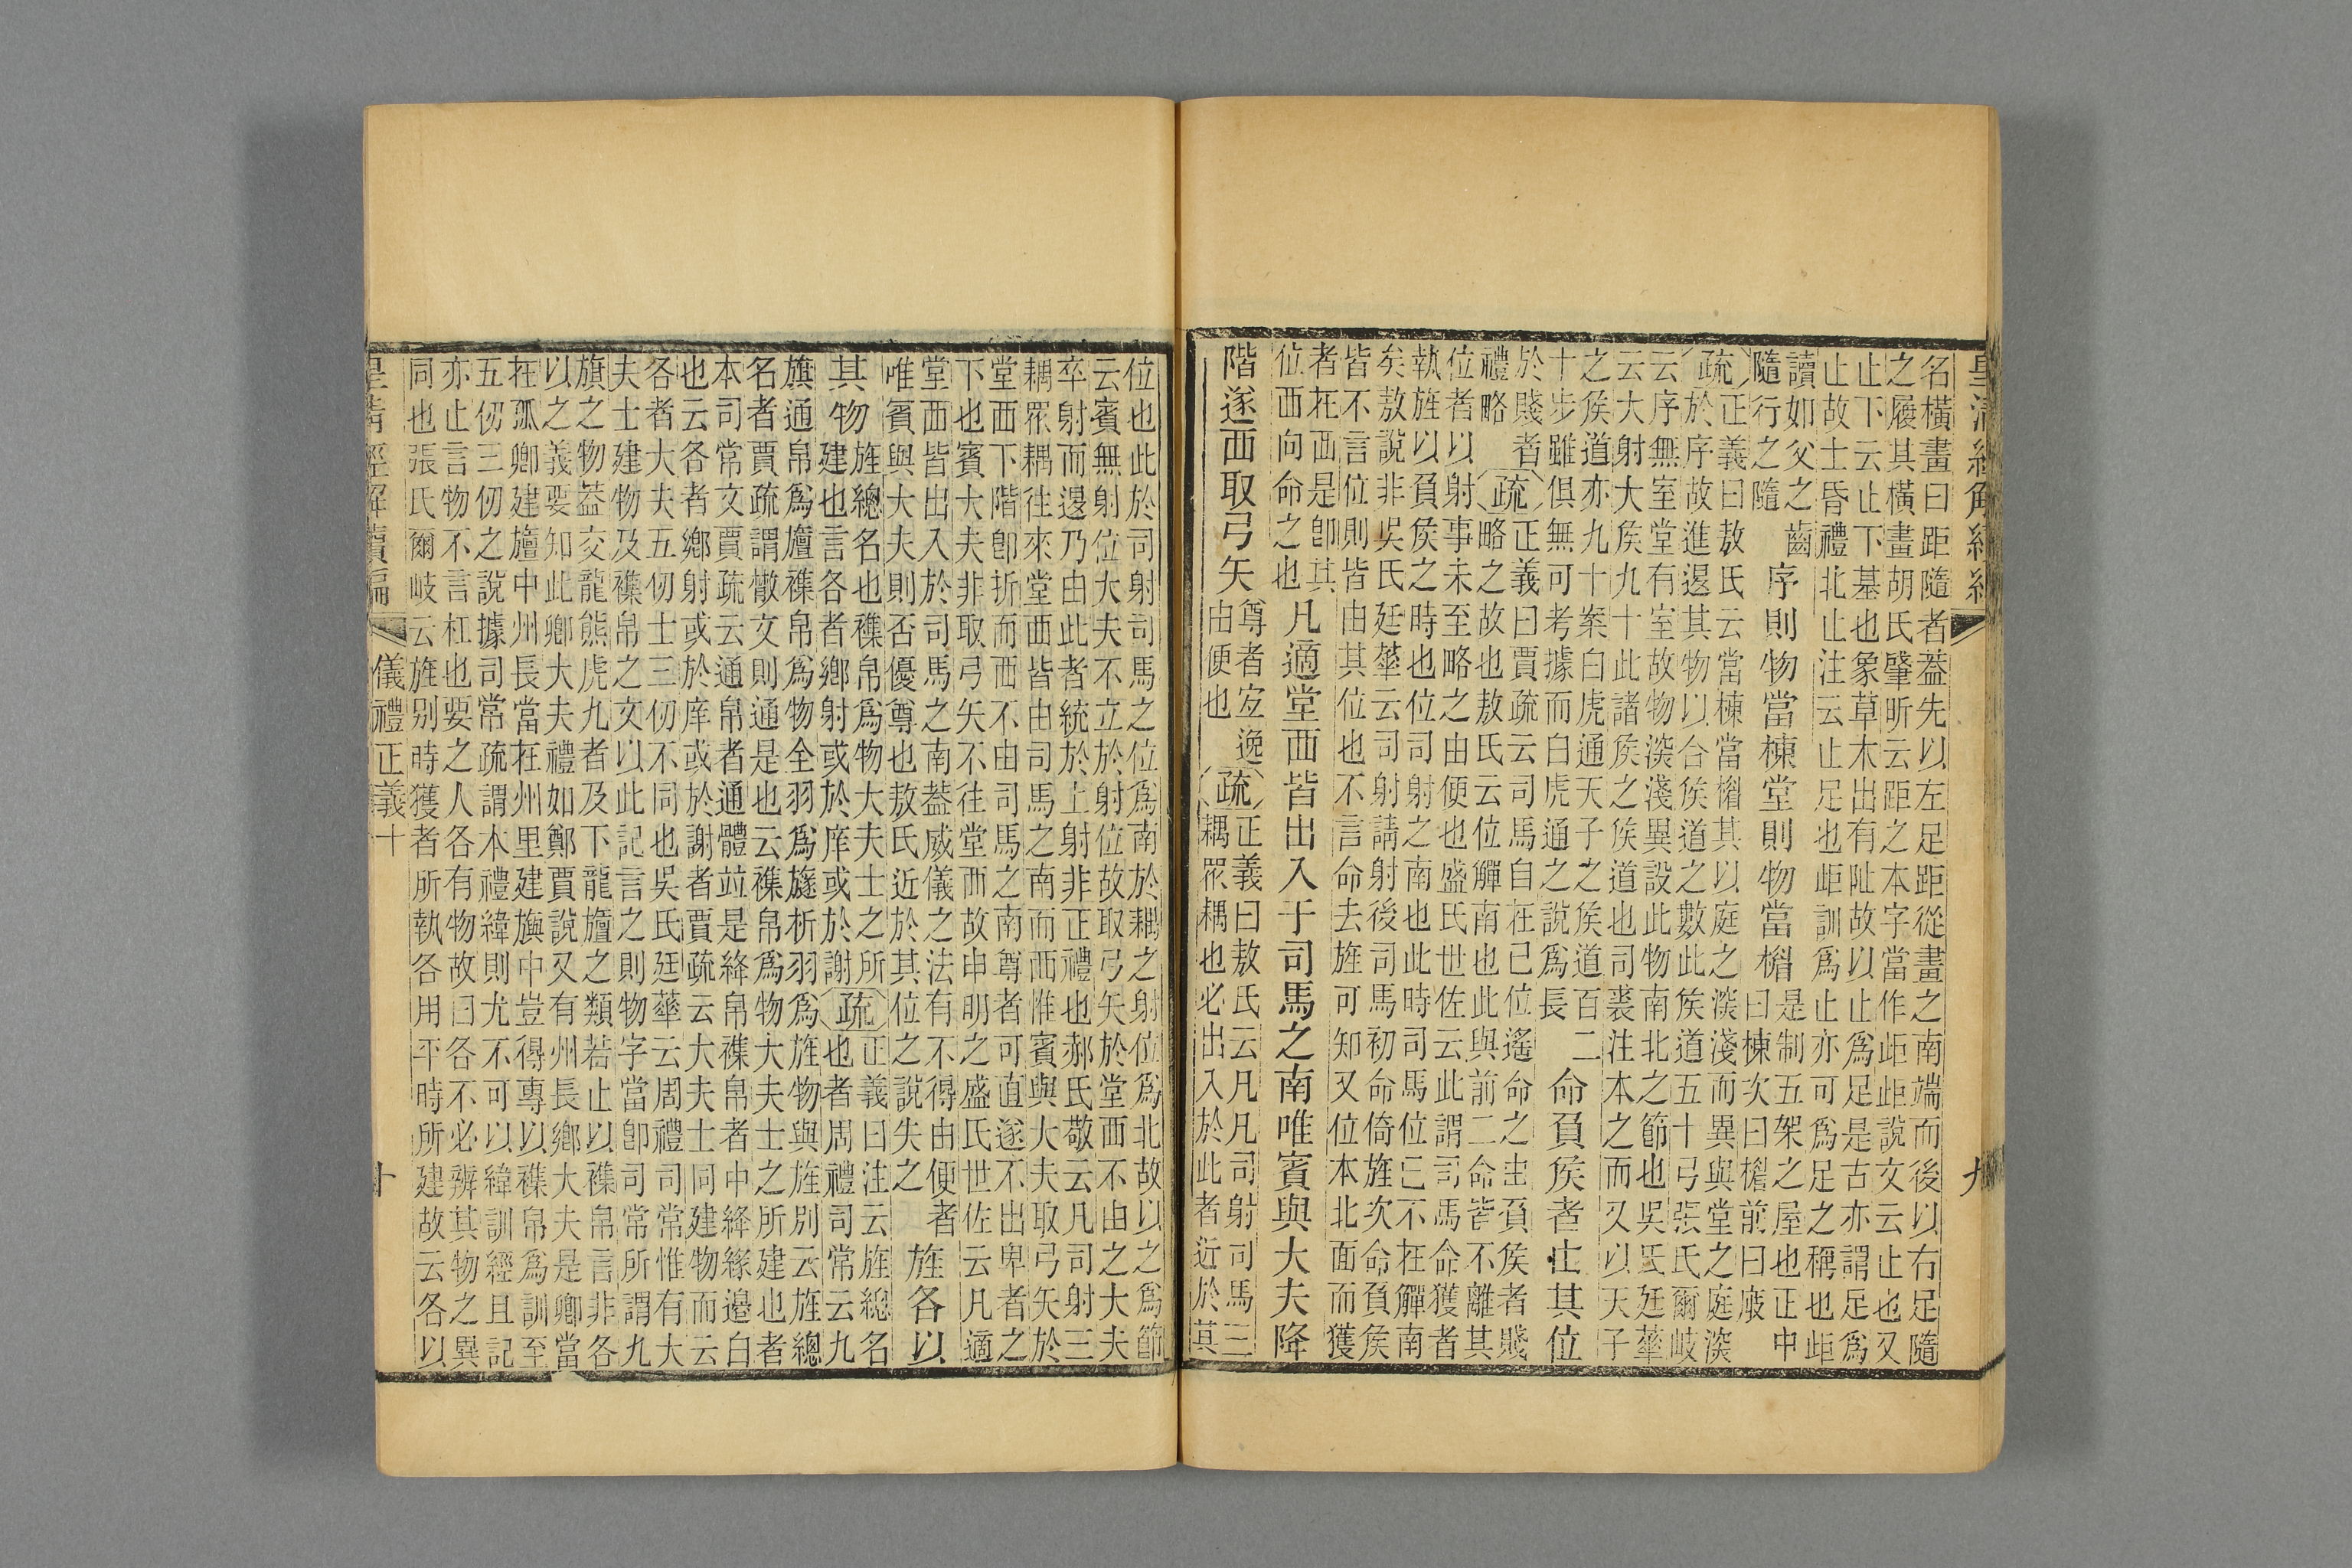 皇清經解續編
九
名橫畫曰距隨者葢先以左足距從畫之南端而後以右足隨
之履其橫畫胡氏肇昕云距之本字當作歫歫說文云止也又
止下云止下基也象草木出有阯故以止爲足是古亦謂足爲
止故士昏禮北止注云止足也歫訓爲止亦可爲足之稱也歫
讀如父之齒
隨行之隨
序則物當棟堂則物當楣
是制五架之屋也正中
曰棟次曰楣前曰庪
疏
正義曰敖氏云當棟當楣其以庭之深淺而異與堂之庭深
於序故進退其物以合侯道之數此侯道五十弓張氏爾岐
云序無室堂有室故物深淺異設此物南北之節也吳氏廷華
云大射大侯九十此諸侯之侯道也司裘注本之而又以天子
之侯道亦九十案白虎通天子之侯道百二
十步雖俱無可考據而白虎通之說爲長
命負侯者由其位
於賤者
禮略
疏
正義曰賈疏云司馬自在已位遙命之由負侯者賤
略之故也敖氏云位觶南也此與前二命皆不離其
位者以射事未至略之由便也盛氏世佐云此謂司馬命獲者
執旌以負侯之時也位司射之南也此時司馬位已不在觶南
矣敖說非吳氏廷華云司射請射後司馬初命倚旌次命負侯
皆不言位則皆由其位也不言命去旌可知又位本北面而獲
者在西是卽其
位西向命之也
凡適堂西皆出入于司馬之南唯賓與大夫降
階遂西取弓矢
尊者宜逸
由便也
疏
正義曰敖氏云凡凡司射司馬三
耦眾耦也必出入於此者近於其
位也此於司射司馬之位爲南於耦之射位爲北故以之爲節
云賓無射位大夫不立於射位故取弓矢於堂西不由之大夫
卒射而退乃由此者統於上射非正禮也郝氏敬云凡司射三
耦眾耦往來堂西皆由司馬之南而西惟賓與大夫取弓矢於
堂西下階卽折而西不由司馬之南尊者可直遂不出卑者之
下也賓大夫非取弓矢不往堂西故申明之盛氏世佐云凡適
堂西皆出入於司馬之南葢威儀之法有不得由便者
唯賓與大夫則否優尊也敖氏近於其位之說失之
旌各以
其物
旌總名也襍帛爲物大夫士之所
建也言各者鄉射或於庠或於謝
疏
正義曰注云旌總名
也者周禮司常云九
旗通帛爲旜襍帛爲物全羽爲旞析羽爲旌物與旌別云旌總
名者賈疏謂散文則通是也云襍帛爲物大夫士之所建也者
本司常文賈疏云通帛者通體竝是絳帛襍帛者中絳緣邊白
也云各者鄉射或於庠或於謝者賈疏云大夫士同建物而云
各者大夫五仞士三仞不同也吳氏廷華云周禮司常惟有大
夫士建物及襍帛之文以此記言之則物字當卽司常所謂九
旗之物葢交龍熊虎九者及下龍旜之類若止以襍帛言非各
以之義要知此鄉大夫禮如鄭賈說又有州長鄉大夫是卿當
在孤卿建旜中州長當在州里建旟中豈得專以襍帛爲訓至
五仞三仞之說據司常疏謂本禮緯則尤不可以緯訓經且記
亦止言物不言杠也要之人各有物故曰各不必辨其物之異
同也張氏爾岐云旌別時獲者所執各用平時所建故云各以
皇清經解續編
儀禮正義十
十